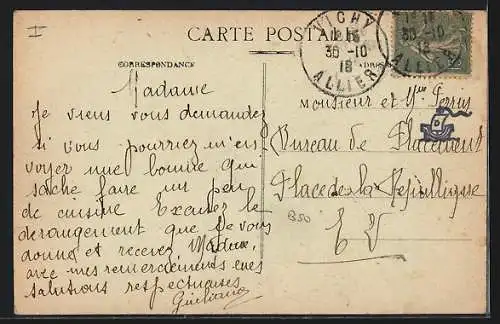 I
CARTE POSTALE
VICHY
30-10
18
ALLIER
30-10
18
ALLIER
CORRESPONDANCE
Madame
Je viens vous demander
si vous pourriez m'en
voyer une bonne qui
sache faire un peu
de cuisine Excusez le
derangement que je vous
donne et recevez Madame,
avec mes remerciements mes
salutions respectueuses
Monsieur et Mme Perrin
Bureau de Placement
Place de la République
350
E V